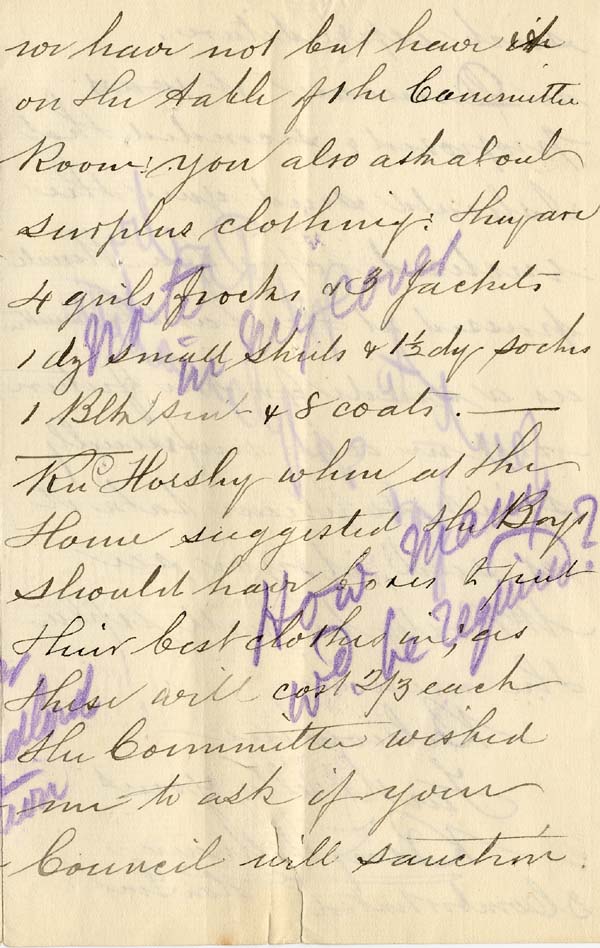 we have not but have it
on the table of the Committee
Room: you also ask about
surplus clothing: they are
4 girls frocks & 3 Jackets
1 dz small shirts & 1½ dz socks
1 Blk suit & 8 coats. —
Revd Horsley when at the
Home suggested the Boys
should have boxes to put
their best clothes in; as
these will cost 2/3 each
the Committee wished
me to ask if your
Council will sanction
Note
in my cover
How many
will be required?